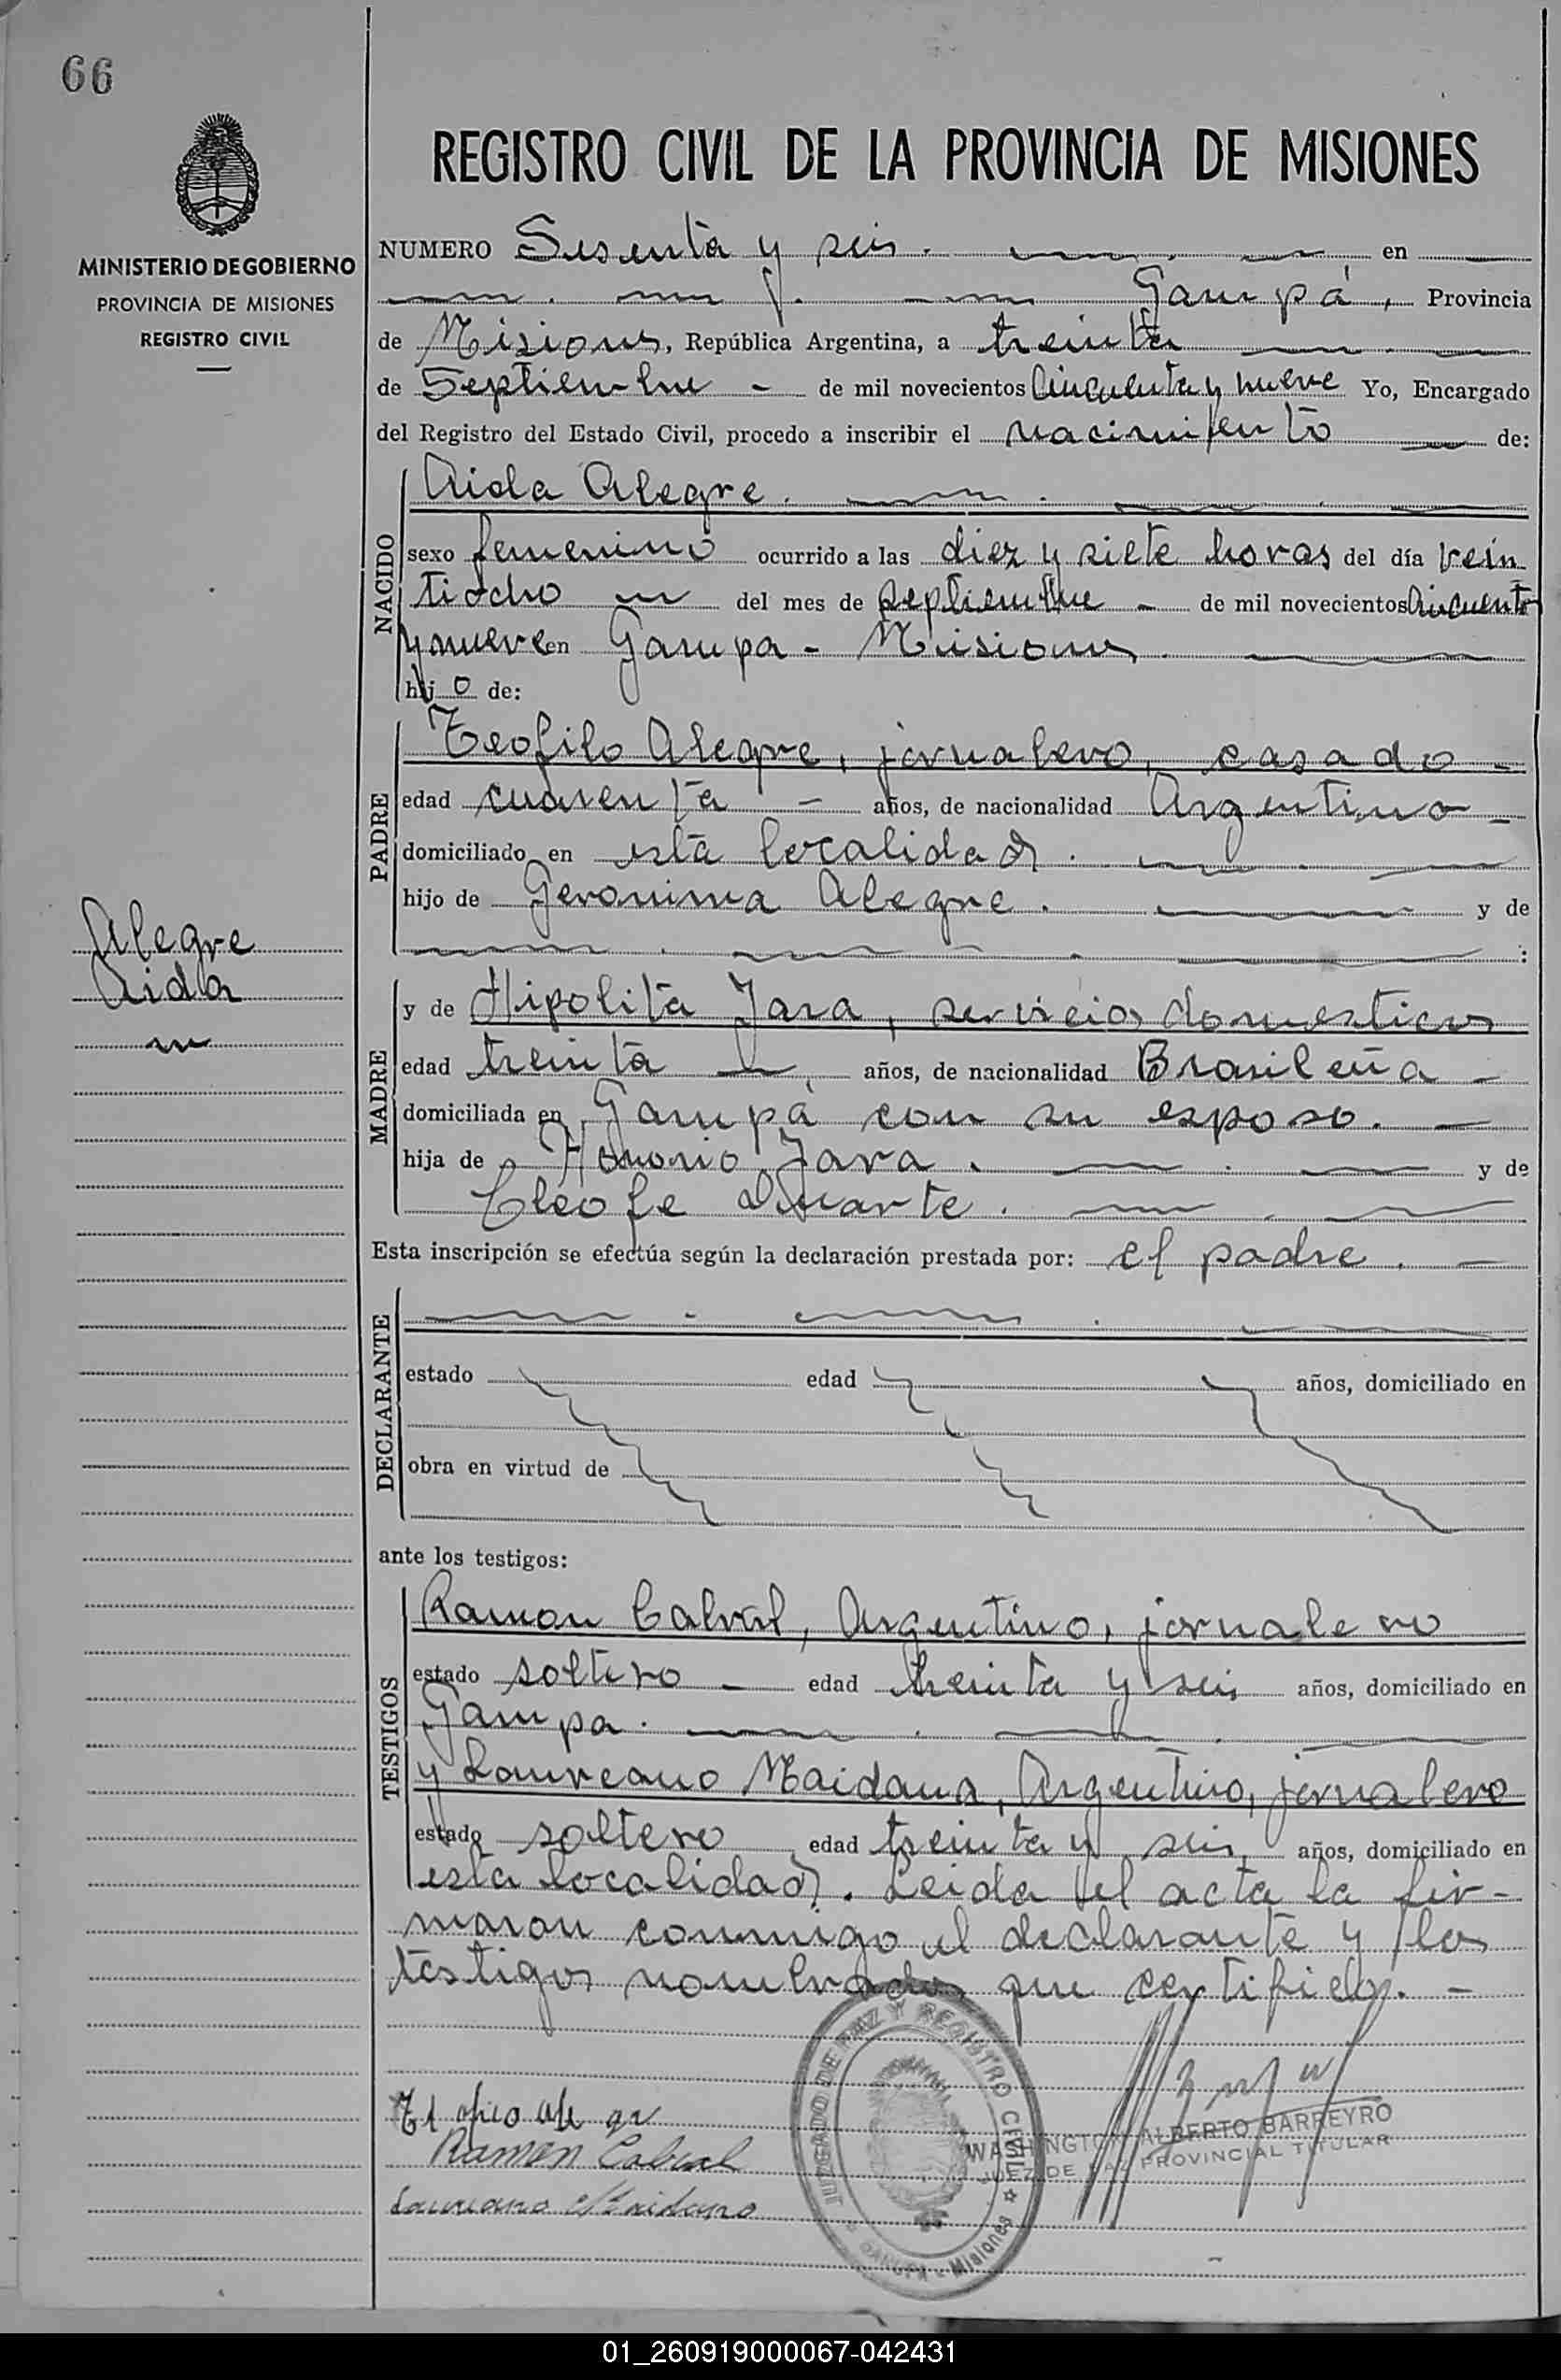 66
MINISTERIO DE GOBIERNO
PROVINCIA DE MISIONES
REGISTRO CIVIL
REGISTRO CIVIL DE LA PROVINCIA DE MISIONES
NUMERO Sesenta y seis. en
Garupá, Provincia
de Misiones, República Argentina, a treinta
de Septiembre - de mil novecientos Cincuenta y nueve Yo, Encargado
del Registro del Estado Civil, procedo a inscribir el nacimiento de:
NACIDO
Aida Alegre.
sexo femenino ocurrido a las diez y siete horas del día vein
tiocho del mes de Septiembre - de mil novecientos Cincuenta
y nueve en Garupa - Misiones.
hijo de:
PADRE
Teofilo Alegre, jornalero, casado -
edad cuarenta - años, de nacionalidad Argentino -
domiciliado en esta localidad.
hijo de Geronima Alegre. y de
:
Alegre
Aida
MADRE
y de Hipolita Jara, servicios domesticos
edad treinta años, de nacionalidad Brasileña -
domiciliada en Garupá con su esposo. -
hija de Honorio Jara. y de
Cleofe Duarte.
Esta inscripción se efectúa según la declaración prestada por: el padre. -
DECLARANTE
estado edad años, domiciliado en
obra en virtud de
ante los testigos:
TESTIGOS
Ramon Cabral, Argentino, jornalero
estado soltero - edad treinta y seis años, domiciliado en
Garupa.
y Laureano Maidana, Argentino, jornalero
estado soltero edad treinta y seis años, domiciliado en
esta localidad. Leida el acta la fir-
maron conmigo el declarante y los
testigos nombrados que certifico. -
JUZGADO DE PAZ Y REGISTRO CIVIL
GARUPA - Misiones
WASHINGTON ALBERTO BARREYRO
JUEZ DE PAZ PROVINCIAL TITULAR
Ramon Cabral
Laureano Maidana
01_260919000067-042431